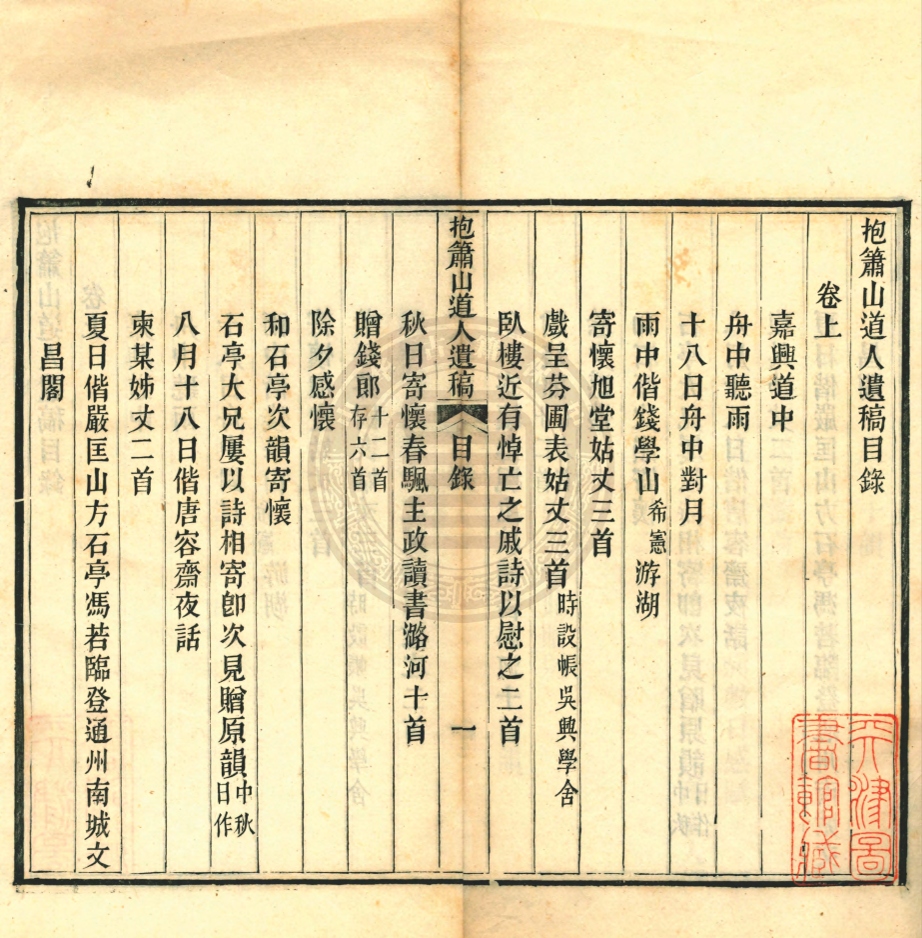 抱簫山道人遺稿目錄
卷上
嘉興道中
舟中聽雨
十八日舟中對月
雨中偕錢學山希憲游湖
寄懷旭堂姑丈三首
戲呈芬圃表姑丈三首時設帳吳興學舍
臥樓近有悼亡之戚詩以慰之二首
抱簫山道人遺稿 目錄 一
秋日寄懷春颿主政讀書潞河十首
贈錢郎十二首存六首
除夕感懷
和石亭次韻寄懷
石亭大兄屢以詩相寄卽次見贈原韻中秋日作
八月十八日偕唐容齋夜話
柬某姊丈二首
夏日偕嚴匡山方石亭馮若臨登通州南城文
昌閣
天津圖
書館藏